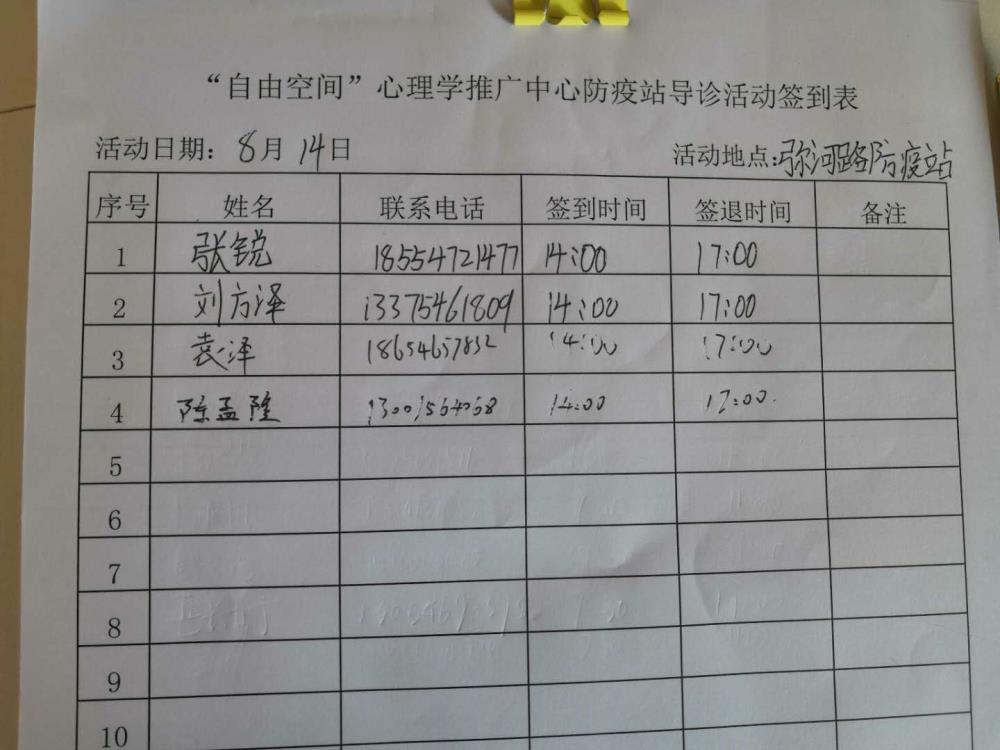 “自由空间”心理学推广中心防疫站导诊活动签到表
活动日期：8月14日 活动地点：弥河路防疫站
序号 姓名 联系电话 签到时间 签退时间 备注
1 张锐 18554721477 14:00 17:00
2 刘方泽 13375461809 14:00 17:00
3 袁泽 18654657832 14:00 17:00
4 陈孟隆 13001564068 14:00 17:00
5
6
7
8
9
10